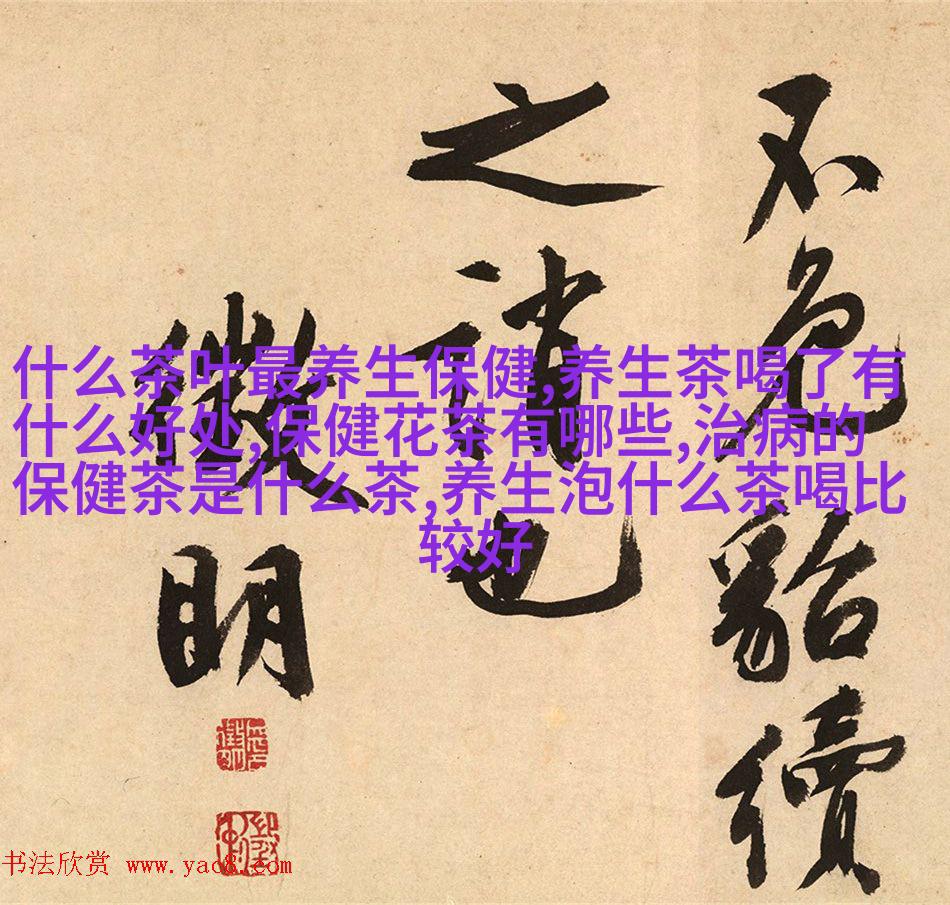 不免貂續
之誚也
徵明
什么茶叶最养生保健,养生茶喝了有
什么好处,保健花茶有哪些,治病的
保健茶是什么茶,养生泡什么茶喝比
较好
书法欣赏 www.yac8.com